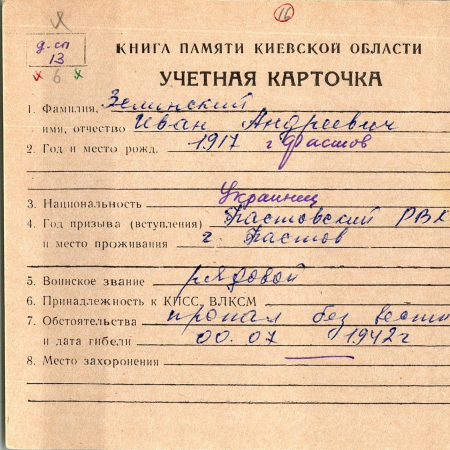 16
д-сп
13
6
КНИГА ПАМЯТИ КИЕВСКОЙ ОБЛАСТИ
УЧЕТНАЯ КАРТОЧКА
1. Фамилия, Зелинский
имя, отчество Иван Андреевич
2. Год и место рожд. 1917 г Фастов
3. Национальность Украинец
4. Год призыва (вступления) Фастовский РВК
и место проживания г. Фастов
5. Воинское звание рядовой
6. Принадлежность к КПСС, ВЛКСМ
7. Обстоятельства пропал без вести
и дата гибели 00.07 1942г
8. Место захоронения